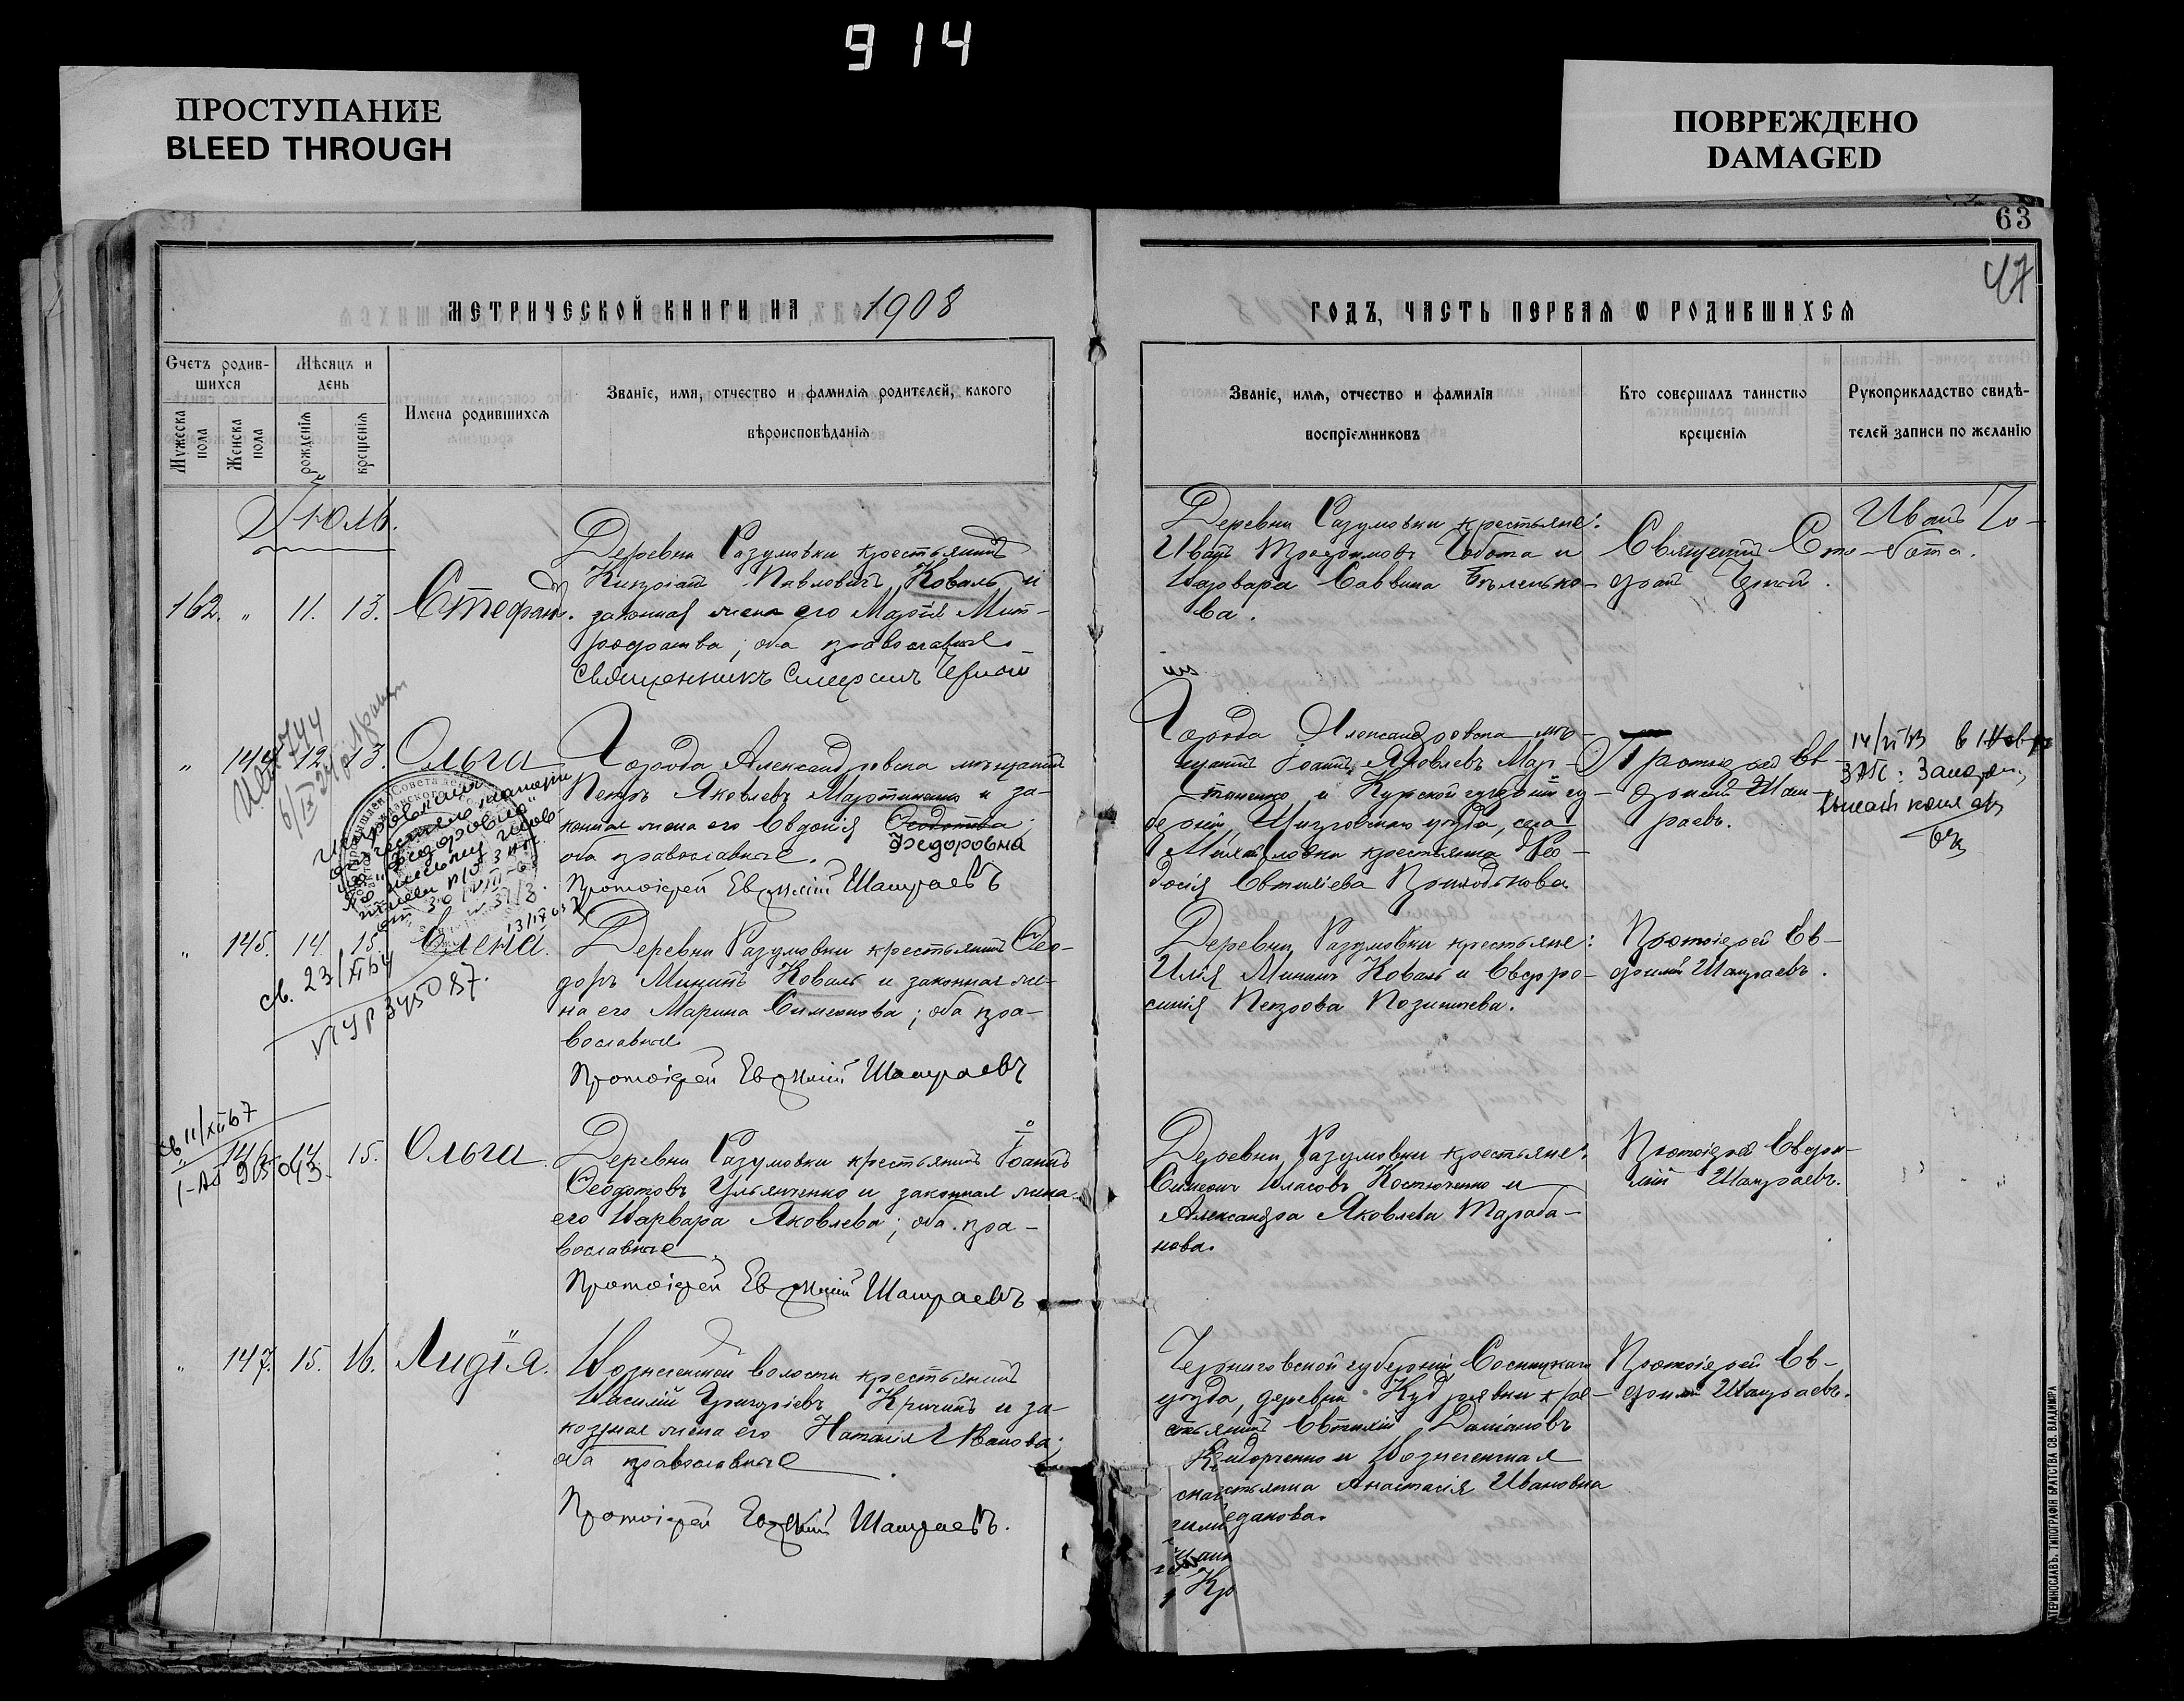 914
ПРОСТУПАНИЕ
BLEED THROUGH
ПОВРЕЖДЕНО
DAMAGED
63
47
МЕТРИЧЕСКОЙ КНИГИ НА 1908
ГОДЪ, ЧАСТЬ ПЕРВАЯ Ѡ РОДИВШИХСЯ
Счетъ родив-
шихся
Мужеска пола
Женска пола
Мѣсяцъ и
день
рожденія
крещенія
Имена родившихся
Званіе, имя, отчество и фамилія родителей, какого
вѣроисповѣданія
Званіе, имя, отчество и фамилія
воспріемниковъ
Кто совершалъ таинство
крещенія
Рукоприкладство свидѣ-
телей записи по желанію
Іюль.
162. " 11. 13. Стефанъ.
Деревни Разумовки крестьянинъ
Павловичъ Коваль и
законная жена его Марія Мит-
рофанова; оба православные.
Священникъ
Деревни Разумовки крестьяне:
Иванъ Трофимовъ Чобота и
Варвара Саввина Бѣленько-
ва.
Священникъ
Иванъ Чо-
бота.
" 144. 12. 13. Ольга
Города Александровска мѣщанинъ
Петръ Яковлевъ Мартыненко и за-
конная жена его Евдокія Федотова;
оба православные. Федоровна
Протоіерей Евфимій Шамраевъ
Города Александровска мѣ-
щанинъ Іоаннъ Яковлевъ Мар-
тыненко и Курской
берніи, Щигровскаго уѣзда, села
Михайловки крестьянка Ѳео-
досія Евтихіева
Протоіерей Ев-
фимій Шам-
раевъ.
" 145. 14. 15. Елена.
Деревни Разумовки крестьянинъ Ѳео-
доръ Мининъ Коваль и законная же-
на его Марина Симеонова; оба пра-
вославные
Протоіерей Евфимій Шамраевъ
Деревни Разумовки крестьяне:
Илія Мининъ Коваль и Евфро-
синія Петрова
Протоіерей Ев-
фимій Шамраевъ.
св. 23/XI 64
345087.
св 11/XII 67
146. 14. 15. Ольга.
Деревни Разумовки крестьянинъ Іоаннъ
Ѳеодотовъ Ульянченко и законная жена
его Варвара Яковлева; оба пра-
вославные.
Протоіерей Евфимій Шамраевъ
Деревни Разумовки крестьяне:
Симеонъ Власовъ Костюченко и
Александра Яковлева Тараба-
нова.
Протоіерей Евфи-
мій Шамраевъ.
" 147. 15. 16. Лидія.
Вознесенской волости крестьянинъ
Василій Григоріевъ Кричинъ и за-
конная жена его Наталія Иванова;
оба православные.
Протоіерей Евфимій Шамраевъ.
Черниговской губерніи Сосницкаго
уѣзда, деревни Кудровки кре-
стьянинъ Евтихій Даміановъ
и Вознесенская
Анастасія Ивановна
Протоіерей Ев-
фимій Шамраевъ.
ТИПОГРАФІЯ БРАТСТВА СВ. ВЛАДИМІРА